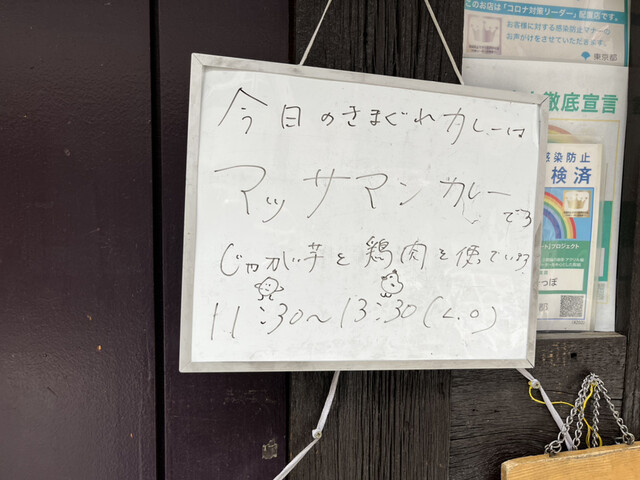 今日のきまぐれカレーは
マッサマンカレーです
じゃがい芋と鶏肉を使ています
11:30〜13:30(L.O)
このお店は「コロナ対策リーダー」配置店です。
お客様に対する感染防止マナーの
お声がけをさせていただきます。
東京都
徹底宣言
感染防止
検済